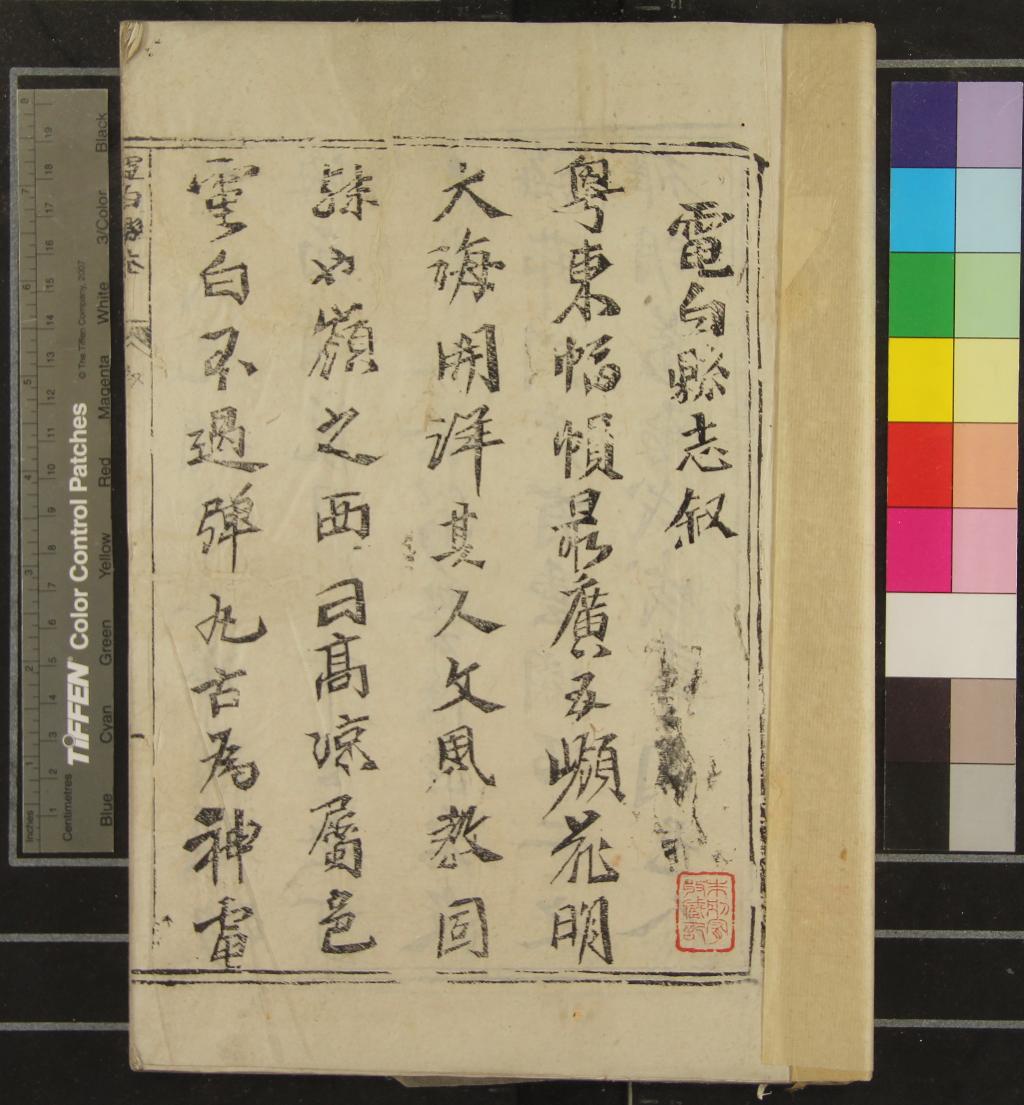 電白縣志叙
粵東幅幀最廣五嶺花明
大海開洋其人文風教固
殊也嶺之西曰高涼屬邑
電白不過彈丸古為神電
電白縣志
TIFFEN® Color Control Patches
© The Tiffen Company, 2007
Inches
Centimetres
1 2 3 4 5 6 7 8
1 2 3 4 5 6 7 8 9 10 11 12 13 14 15 16 17 18 19
Blue Cyan Green Yellow Red Magenta White 3/Color Black